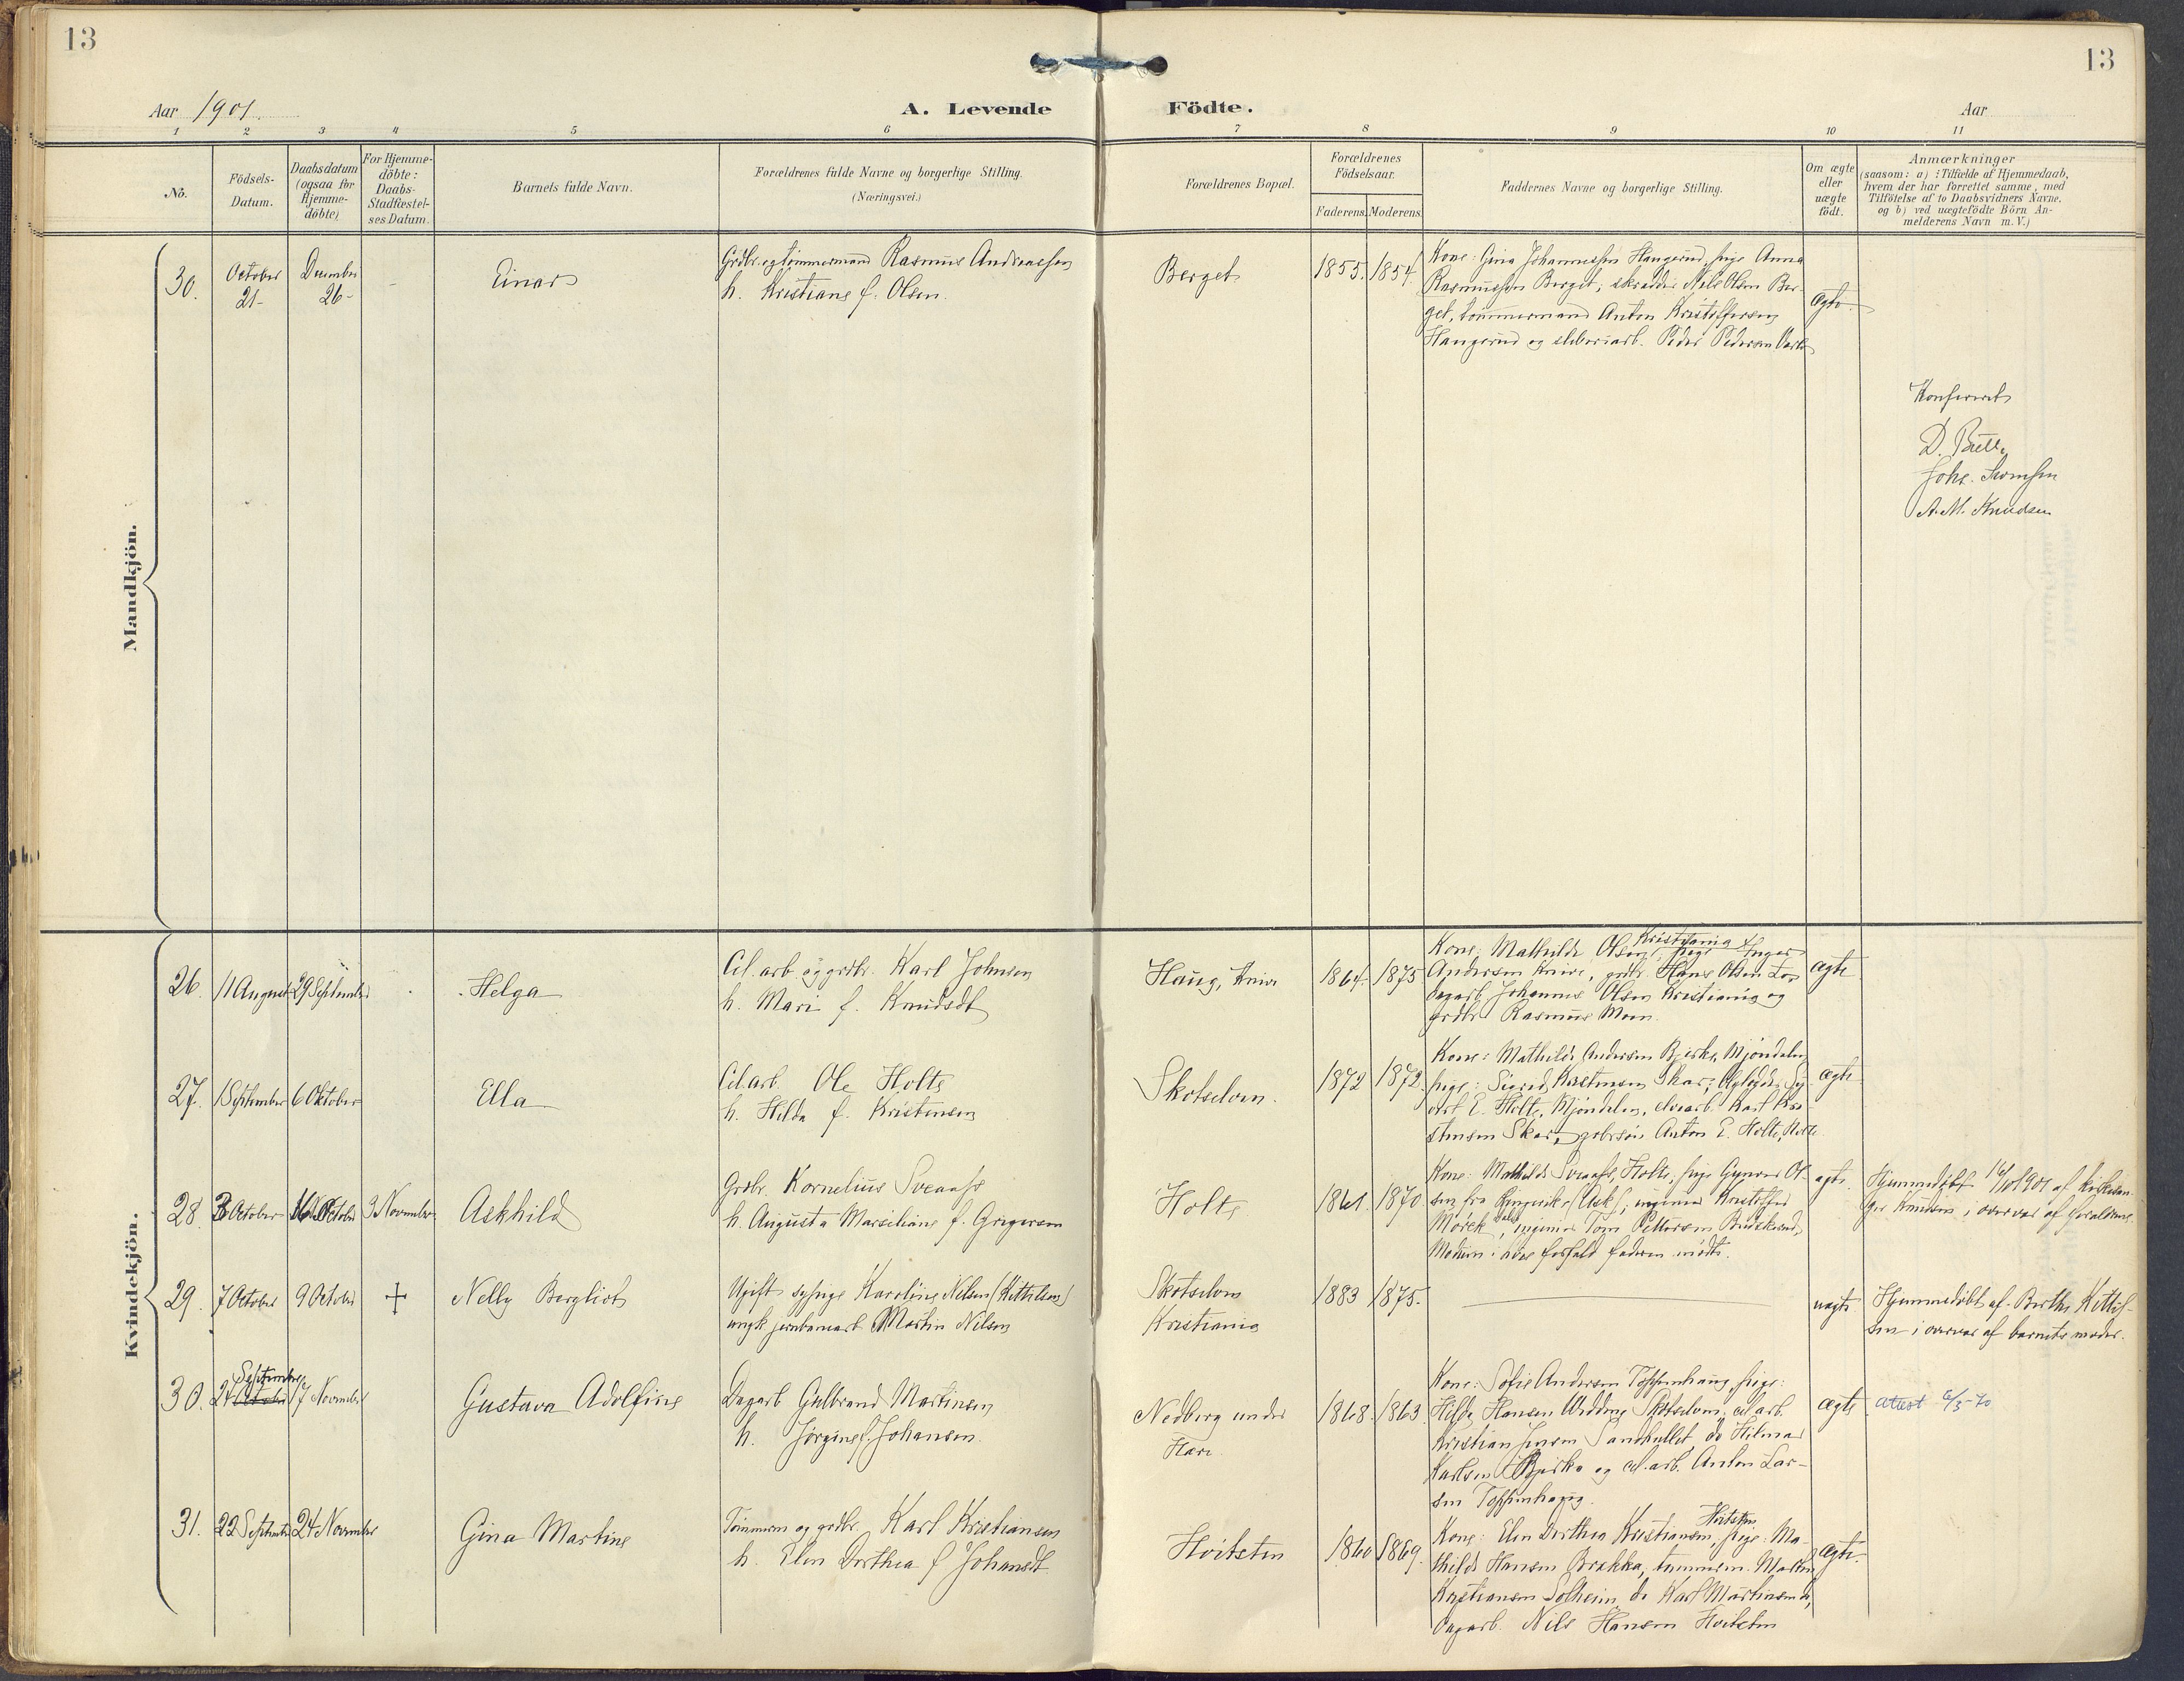 13
13
Aar 1901.
A. Levende Födte.
Aar
1 2 3 4 5 6 7 8 9 10 11
No.
Födsels-
Datum.
Daabsdatum
(ogsaa for
Hjemme-
döbte)
For Hjemme-
döbte:
Daabs-
Stadfæstel-
ses Datum.
Barnets fulde Navn.
Forældrenes fulde Navne og borgerlige Stilling.
(Næringsvei.)
Forældrenes Bopæl.
Forældrenes
Födselsaar.
Faderens. Moderens.
Faddernes Navne og borgerlige Stilling.
Om ægte
eller
uægte
födt.
Anmærkninger
(saasom: a) : Tilfælde af Hjemmedaab,
hvem der har forrettet samme, med
Tilföielse af to Daabsvidners Navne.
og b) ved uægtefödte Börn An-
melderens Navn m.V.)
Mandkjön.
30.
October
21-
December
26-
Einar
Grdbr. og tömmermand Rasmus Andreassen
h. Kristiane f. Olsen.
Berget
1855. 1854.
Kone: Gina Johannessen Haugerud, pige Anna
Rasmussen Berget; skrædder Nils Olsen Ber-
get, tömmermand Anton Kristoffersen
Haugerud og sliberiarb. Peder Pedersen
ægte
Konfereret
D. Bull
Johs.
A.M. Knudsen
Kvindekjön.
26. 11 August 29 September
Helga
Cel. arb. og grdbr. Karl Johnsen
h. Mari f. Knudsdt
Haug,
1864. 1875
Kone: Mathilde Olsen, Kristiania, pige Inger
Andersen, grdbr. Hans Olsen
dagarb. Johannes Olsen Kristiania og
grdbr. Rasmus Moen.
ægte
27. 1 September 6 Oktober
Ella
Cel. arb. Ole Holte
h. Hilda f. Kristensen
Skotselven.
1872 1872.
Kone: Mathilde Andersen Bjerke, Mjöndalen,
pige: Sigrid Kristensen Skar;
E. Holte, Mjöndalen, Karl Kri-
stensen Skar, grbrsön Anton E. Holte, Holte
ægte
28. 3 October 16 October 3 November
Askhild
Grdbr. Kornelius Sveaass
h. Augusta Marsiliane f. Grigersen
Holte
1861. 1870
Kone: Mathilde Sveaass, Holte, pige Gunvor Ol-
sen fra Ringerike (Ask), ungmand Kristoffer
Mörch, ungmand Tom Pettersen Buskerud,
Modum i deres forfald faderen mödte.
ægte.
Hjemmedöbt 16/10 1901 af kirkesan-
ger Knudsen i overvær af forældrene.
29. 7 October 9 October +
Nelly Bergliot
Ugift sypige Karoline Nilsen (Kittilsen)
ungk. jernbanearb. Martin Nilsen
Skotselven
Kristiania
1883 1875.
uægte
Hjemmedöbt af Berthe Kittil-
sen i overvær af barnets moder.
30. 24 September 17 November
Gustava Adolfine
Dagarb. Gulbrand Martinsen
h. Jörgine f. Johansen.
Nedberg under
Hære.
1868. 1863.
Kone: Sofie Andersen Toppenhaug, pige:
Hilda Hansen Skotselven, cel. arb.
Kristian Jensen Sandhullet, do Hilmar
Karlsen Bjerke og cel. arb. Anton Lar-
sen Toppenhaug.
ægte
attest 6/3-70
31. 22 September 24 November
Gina Martine
Tömmerm. og grdbr. Karl Kristiansen
h. Elen Dorthea f. Johansdt
Hvitsten
1860 1869.
Kone: Elen Dorthea Kristiansen, Hvitsten, pige: Ma-
thilde Hansen Brekka, tömmerm. Martin
Kristiansen Solheim, do Karl Martinsen do,
dagarb. Nils Hansen Hvitsten
ægte.